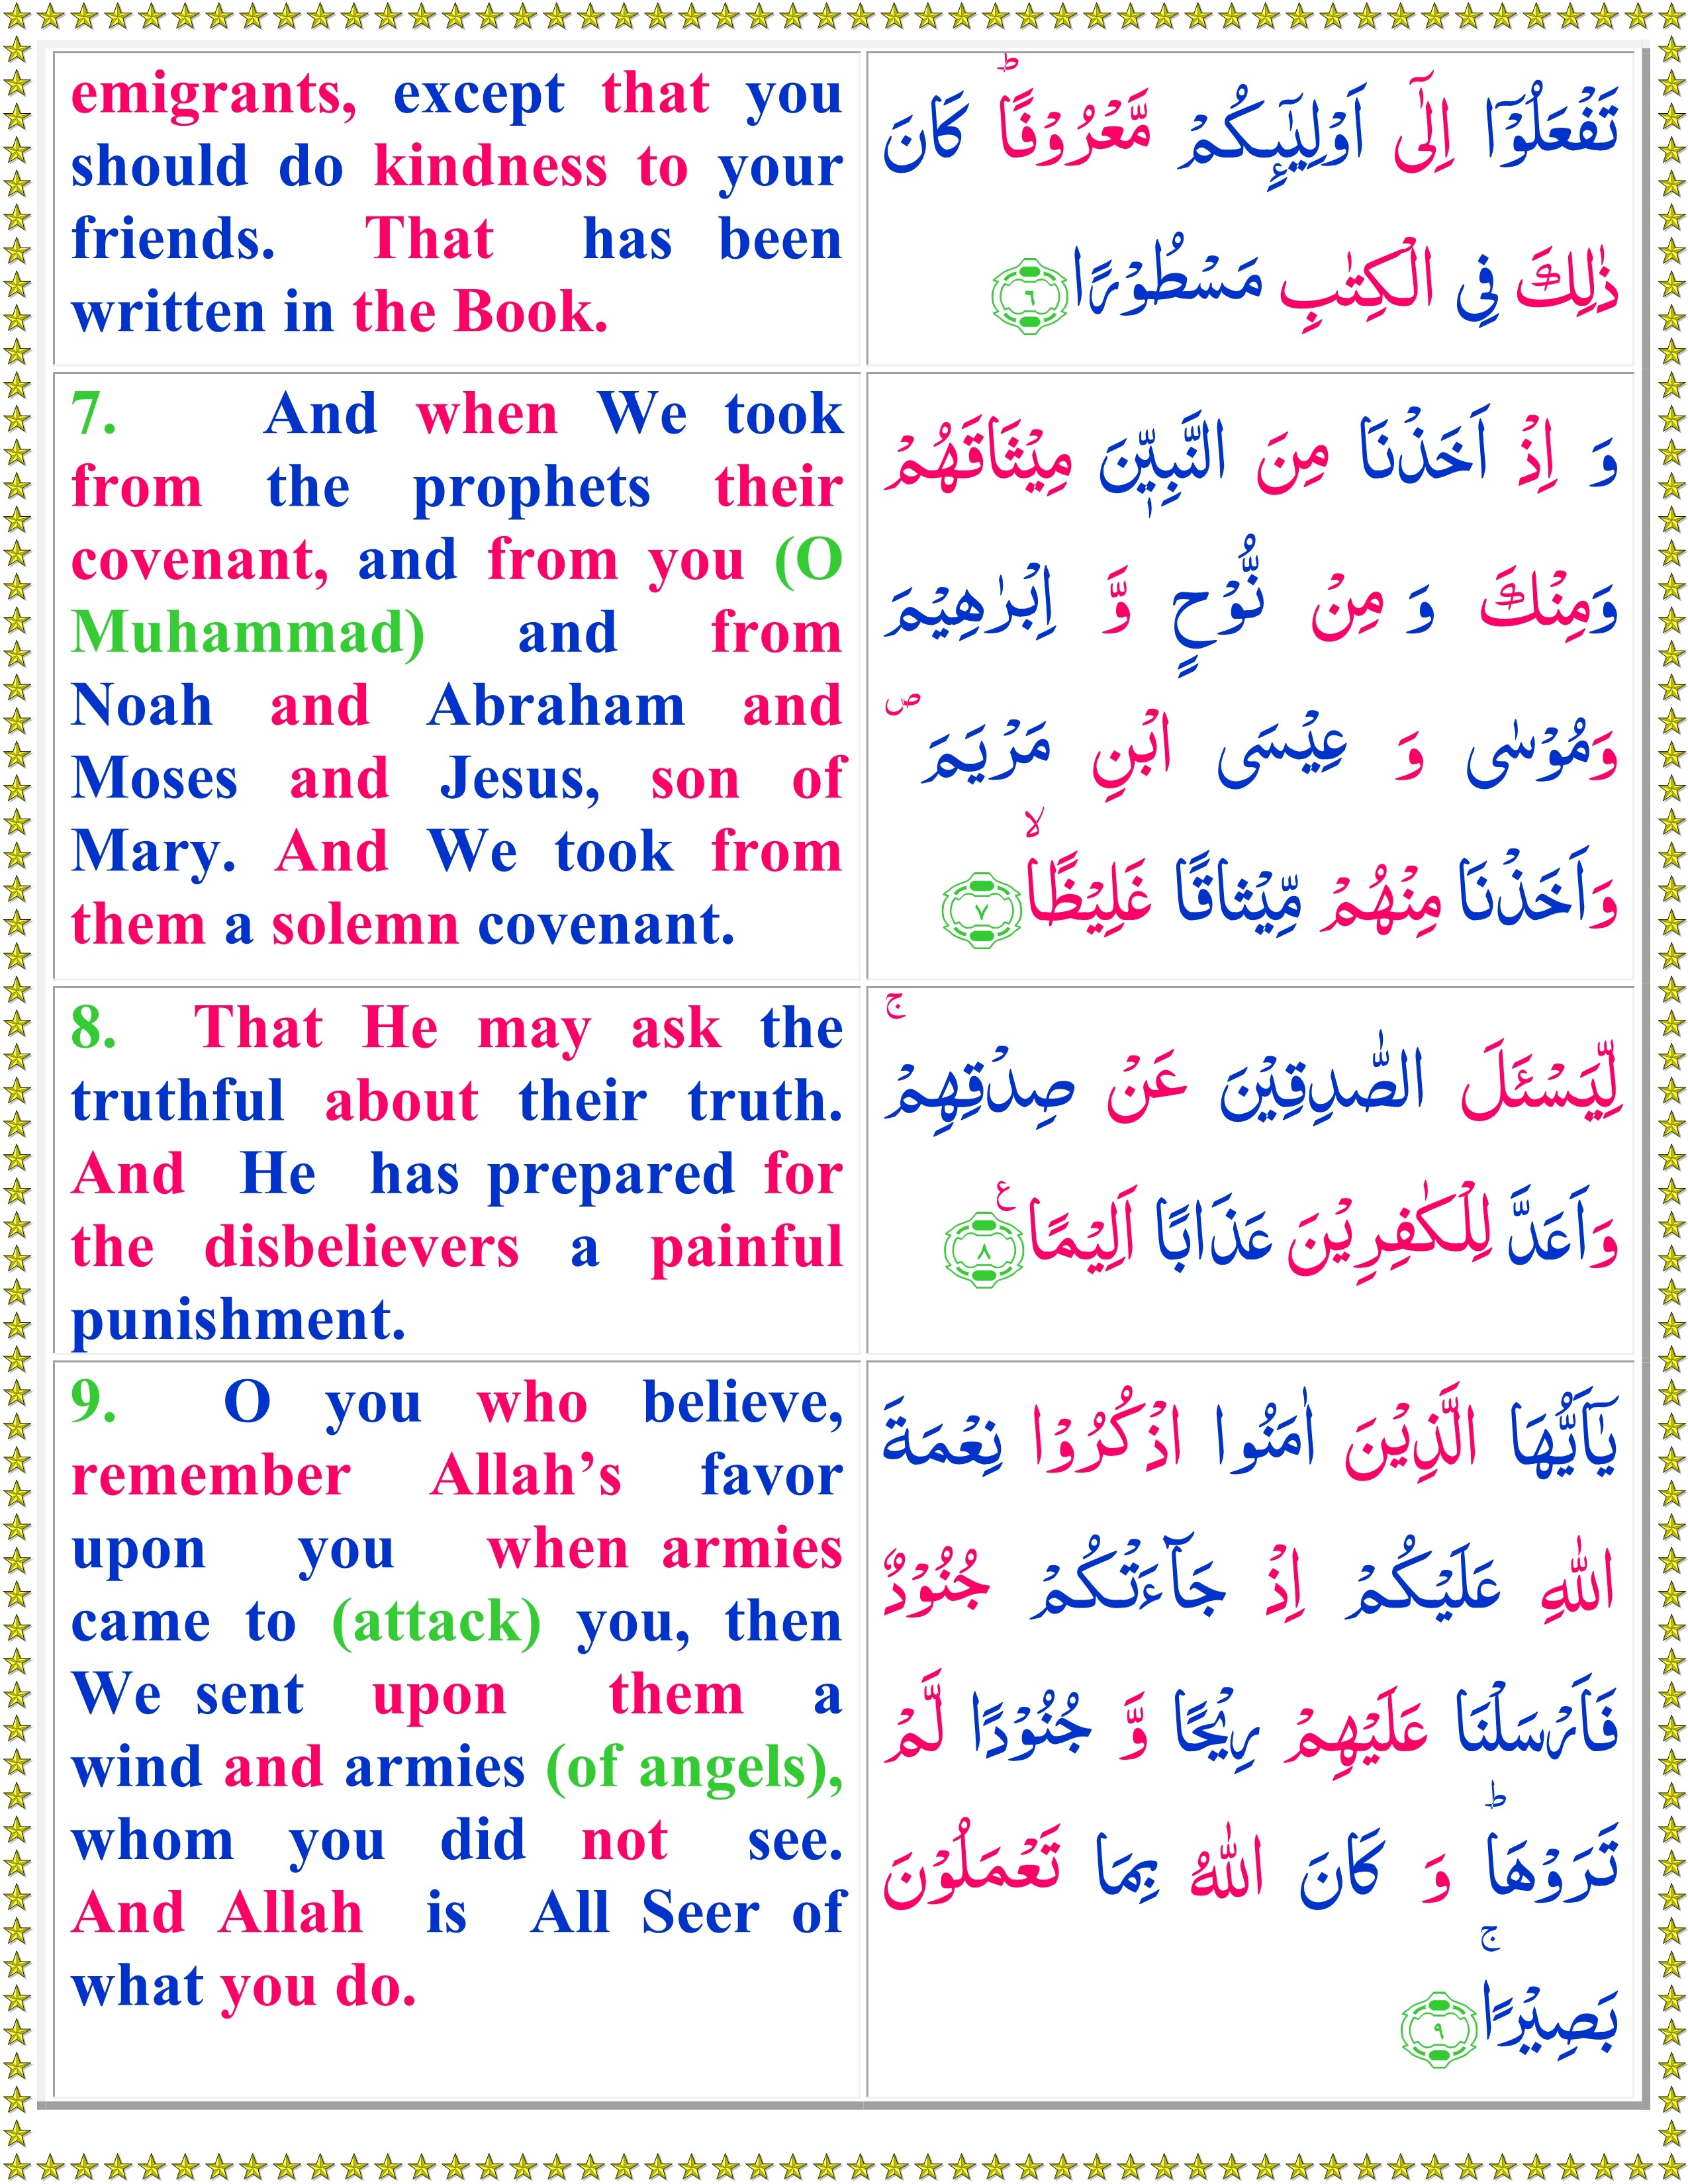 emigrants, except that you
should do kindness to your
friends. That has been
written in the Book.
تَفْعَلُوْۤا اِلٰۤى اَوْلِيٰٓٮِٕكُمْ مَّعْرُوْفًا ؕ كَانَ
ذٰلِكَ فِى الْكِتٰبِ مَسْطُوْرًا ٦
7. And when We took
from the prophets their
covenant, and from you (O
Muhammad) and from
Noah and Abraham and
Moses and Jesus, son of
Mary. And We took from
them a solemn covenant.
وَ اِذْ اَخَذْنَا مِنَ النَّبِيّٖنَ مِيْثَاقَهُمْ
وَمِنْكَ وَ مِنْ نُّوْحٍ وَّ اِبْرٰهِيْمَ
وَمُوْسٰى وَ عِيْسَى ابْنِ مَرْيَمَ ۖ
وَاَخَذْنَا مِنْهُمْ مِّيْثاقًا غَلِيْظًا ۙ ٧
8. That He may ask the
truthful about their truth.
And He has prepared for
the disbelievers a painful
punishment.
لِّيَسْئَلَ الصّٰدِقِيْنَ عَنْ صِدْقِهِمْ ۚ
وَاَعَدَّ لِلْكٰفِرِيْنَ عَذَابًا اَلِيْمًا ع ٨
9. O you who believe,
remember Allah’s favor
upon you when armies
came to (attack) you, then
We sent upon them a
wind and armies (of angels),
whom you did not see.
And Allah is All Seer of
what you do.
يٰۤاَيُّهَا الَّذِيْنَ اٰمَنُوا اذْكُرُوْا نِعْمَةَ
اللّٰهِ عَلَيْكُمْ اِذْ جَآءَتْكُمْ جُنُوْدٌ
فَاَرْسَلْنَا عَلَيْهِمْ رِيْحًا وَّ جُنُوْدًا لَّمْ
تَرَوْهَا ؕ وَ كَانَ اللّٰهُ بِمَا تَعْمَلُوْنَ
بَصِيْرًا ۚ ٩